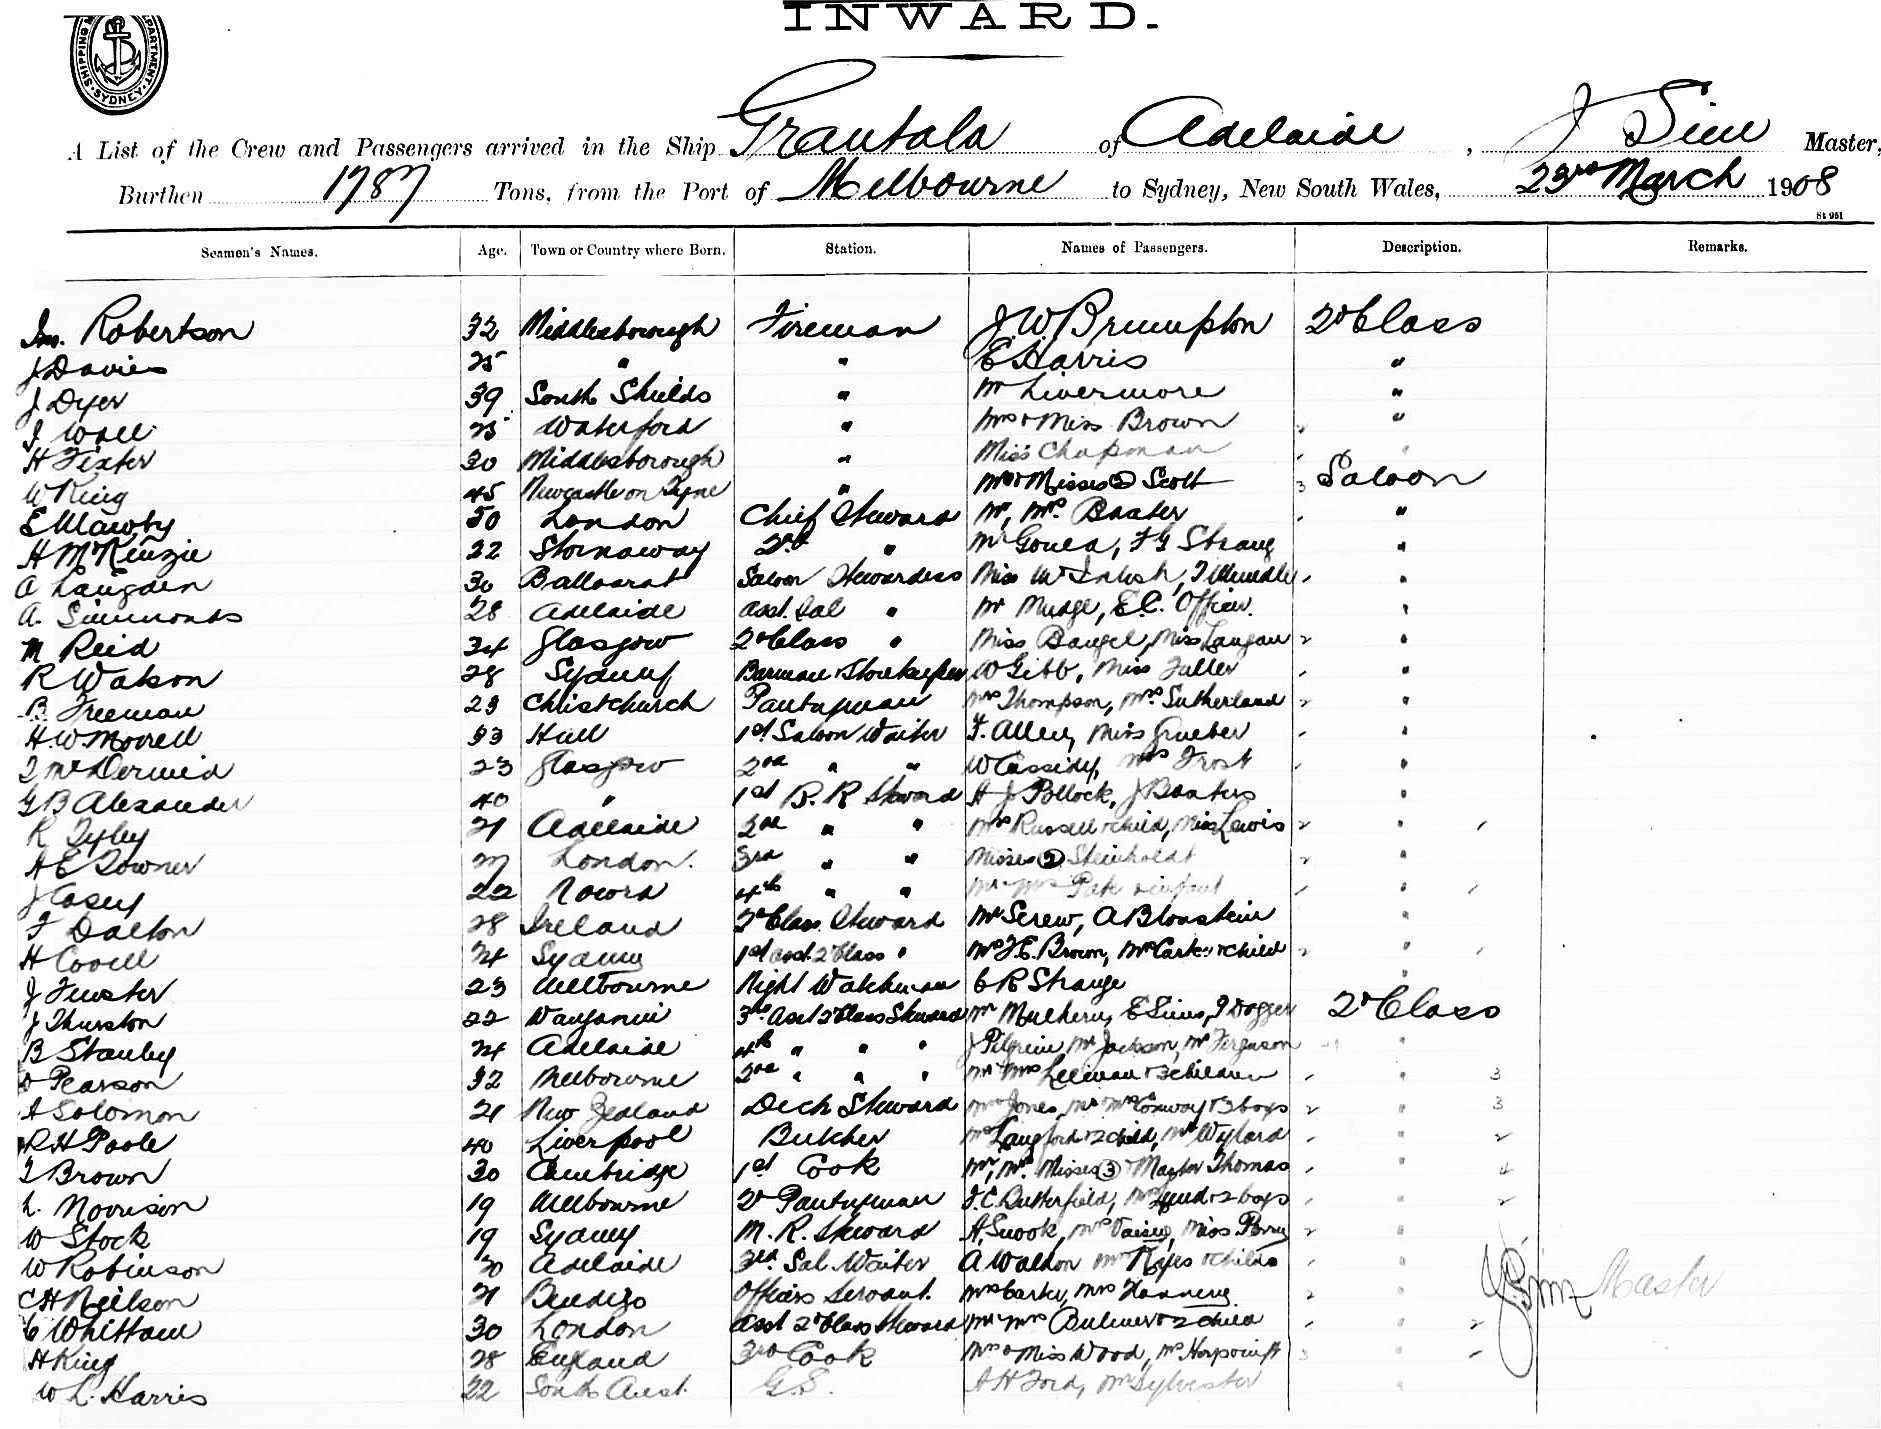 INWARD.
SHIPPING DEPARTMENT. SYDNEY.
A List of the Crew and Passengers arrived in the Ship Grantala of Adelaide, J Sim Master,
Burthen 1787 Tons, from the Port of Melbourne to Sydney, New South Wales, 23rd March 1908
Seamen's Names. Age. Town or Country where Born. Station. Names of Passengers. Description. Remarks.
Robertson 32 Middlesborough Fireman J. W. Brumpton 2d Class
J Davies 25 " " E Harris "
J Dyer 39 South Shields " Mr Livermore "
J Wall 25 Waterford " Mrs & Miss Brown "
H Fixter 30 Middlesborough " Miss Chapman "
W King 45 Newcastle on Tyne " Misses 2 Scott 3 Saloon
E Mawby 50 London Chief Steward Mr, Mrs. Baxter "
H McKenzie 22 Stornaway 2nd " Mr Gouea, F G Strang "
A Langden 30 Ballaarat Saloon Stewardess Miss McIntosh, "
A. Simmonds 28 Adelaide asst. Sal " Mr Mudge, E.C. Officer. "
M Reid 34 Glasgow 2d Class " Miss Baugel, Miss Langan 2 "
R Watson 28 Sydney Barman & Storekeeper W Gibb, Miss Fuller "
B. Freeman 23 Christchurch Pantryman Mrs Thompson, Mrs Sutherland 2 "
H. W Morrell 33 Hull 1st Saloon Waiter F. Allen, Miss Grueber "
J McDermid 23 Glasgow 2nd " " W Cassidy, Mrs Frost "
G B Alexander 40 " 1st B. R Steward H J Pollock, J Baxters "
R Tyley 21 Adelaide 2nd " " Mrs Russell & child, Miss Lewis 2 "
H E Downer 27 London. 3rd " " Misses 2 Steinholdt 2 "
J Casey 22 Nowra 4th " " Mr Mrs & infant "
F Dalton 28 Ireland 2d Class Steward Mr Screw, A Blonstein "
H Covell 24 Sydney 1st asst. 2d Class " Mrs F. E. Brown, Mrs Carter & child 2 "
J Funster 23 Melbourne Night Watchman C R Strange "
J Thurston 22 3rd. Asst 2d Class Steward Mr Mulhern, E Sims, J Dogger 2d Class
B Stanley 24 Adelaide 4th " " " J Pilgrim, Mr Jackson, Mr Ferguson "
D Pearson 32 Melbourne 2nd " " " Mr Mrs Leeman & 3 children " 3
A Solomon 21 New Zealand Deck Steward Mrs Jones, Mr Mrs Conway & 3 boys 2 " 3
R H Poole 40 Liverpool Butcher Mrs Langford & 2 child, Mr Wylard " 2
T Brown 30 Cambridge 1st Cook Mr, Mrs. Misses 3 & Master Thomas " 4
L. Morrison 19 Melbourne 2d Pantryman F. C. Butterfield, Mrs Lynd & 2 boys " 2
W Stock 19 Sydney M. R. Steward A. Snook, Mrs Vaisey, Miss Perry 2 "
W Robinson 20 Adelaide 3rd. Sal. Waiter A Waldon Mrs Keyes & child "
C H Neilson 21 Bendigo Officers Servant. Mrs Carter, Mrs Flannery 2 "
C Whittam 30 London Asst 2d Class Steward Mr Mrs Bulmer & 2 child " 2
H King 28 England 3rd Cook Mrs & Miss Wood, "
W L. Harris 22 South Aust. G. S. A H Ford, Mr Sylvester "
J Sim Master